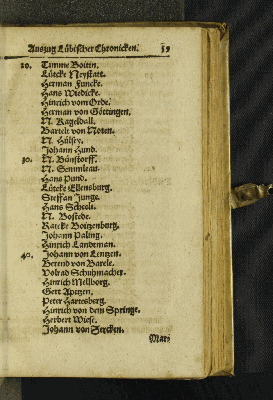 Auszug Lübischer Chronicken. 19
20. Timme Boitin.
Lütcke Neystatt.
Herman Funcke.
Hans Wiedicke.
Hinrich vom Orde.
Herman von Göttingen.
N. Kageldall.
Bartelt von Noten.
N. Hülsey.
Johann Hund.
30. N. Bünstorff.
N. Semmlau.
Hans Pund.
Lütcke Ellensburg.
Steffan Junge.
Hans Scheeli.
N. Bostede.
Ratcke Boitzenburg.
Johann Paling.
Hinrich Landeman.
40. Johann von Lentzen.
Berend von Barele.
Volrad Schuhmacher.
Hinrich Mellborg.
Gert Apetzen.
Peter Hartesberg.
Hinrich von dem Springe.
Herbert Wiese.
Johann von Stecken.
Mar⸗